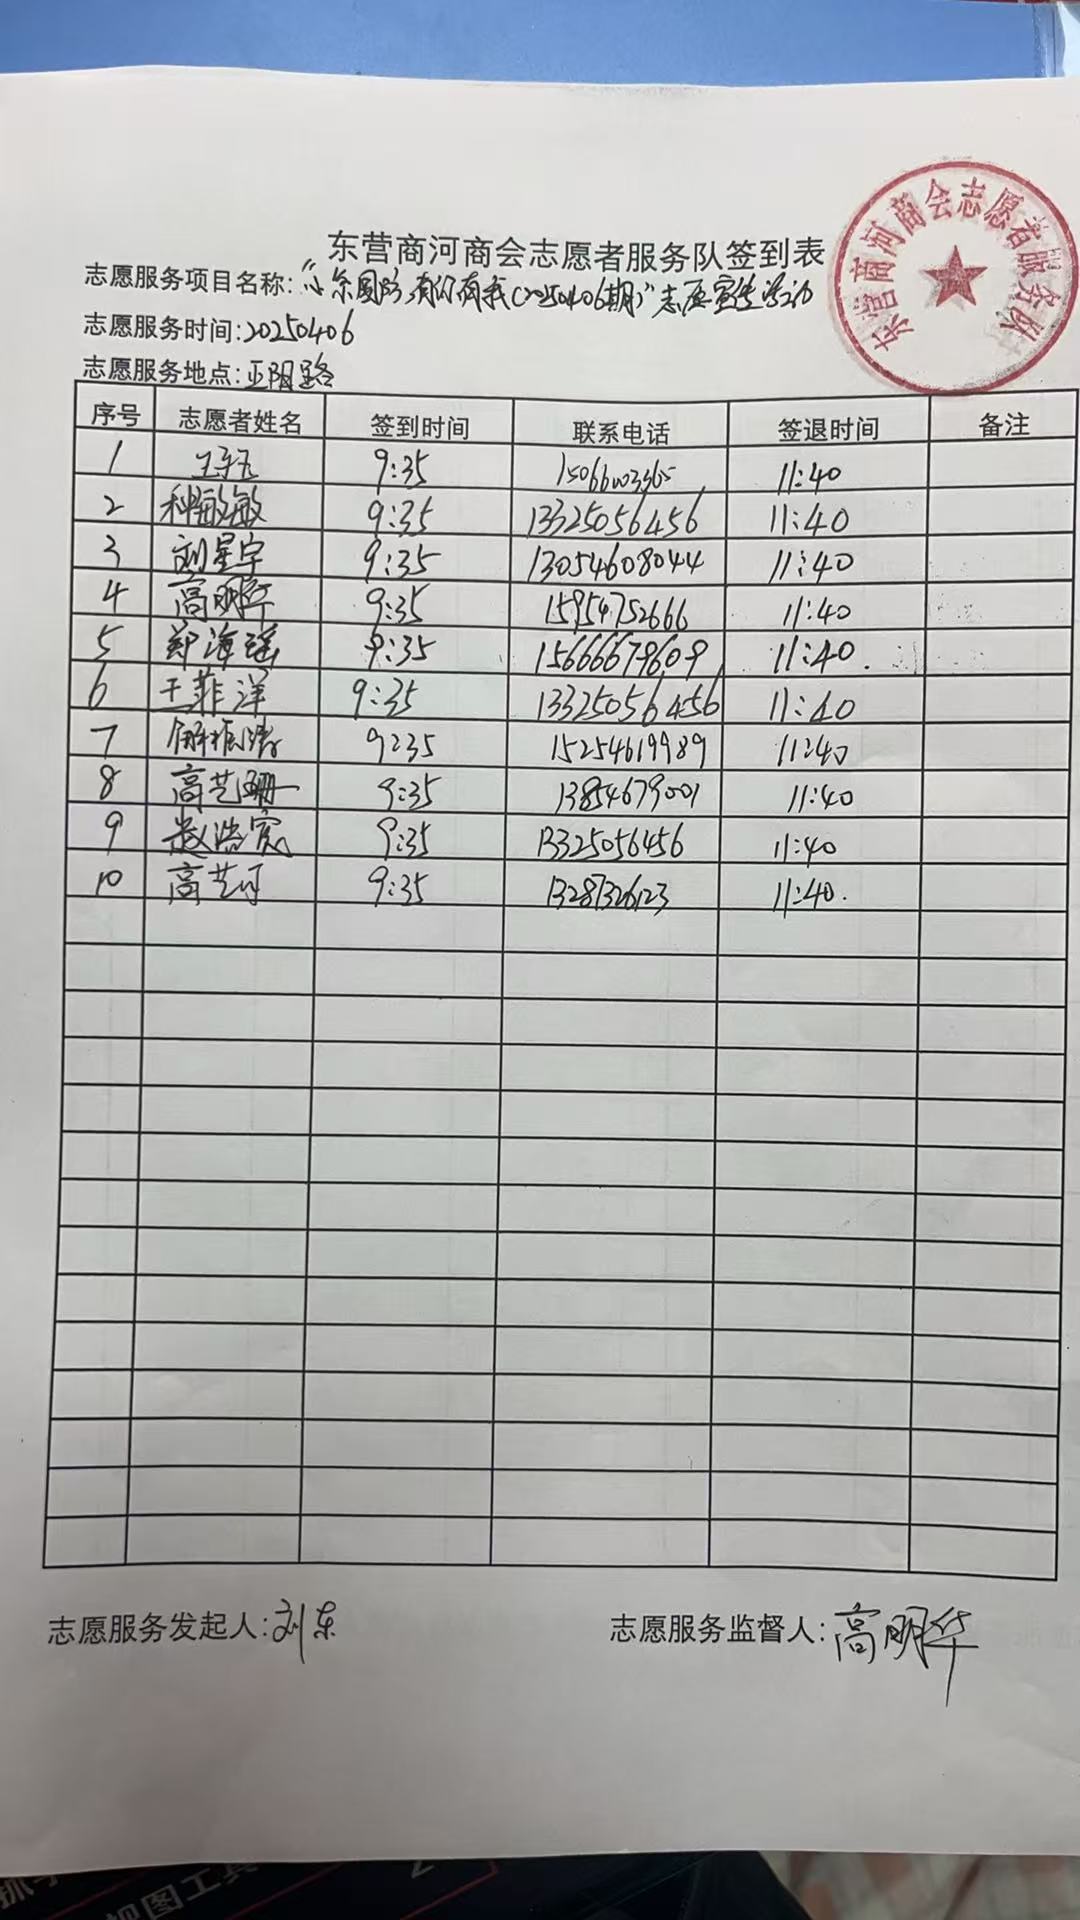 东营商河商会志愿者服务队
东营商河商会志愿者服务队签到表
志愿服务项目名称:“心系国防,有你有我(20250406期)”志愿宣传活动
志愿服务时间:20250406
志愿服务地点:正阳路
序号 志愿者姓名 签到时间 联系电话 签退时间 备注
1 9:35 15066003365 11:40
2 种敏敏 9:35 13325056456 11:40
3 刘星宇 9:35 13054608044 11:40
4 高明华 9:35 15954752666 11:40
5 郑海瑶 9:35 15666679609 11:40.
6 王菲洋 9:35 13325056456 11:40
7 9:35 15254619989 11:40
8 高艺珊 9:35 13854679001 11:40
9 赵浩宽 9:35 13325056456 11:40
10 高艺可 9:35 13287326123 11:40.
志愿服务发起人:刘东 志愿服务监督人:高明华
视图工具